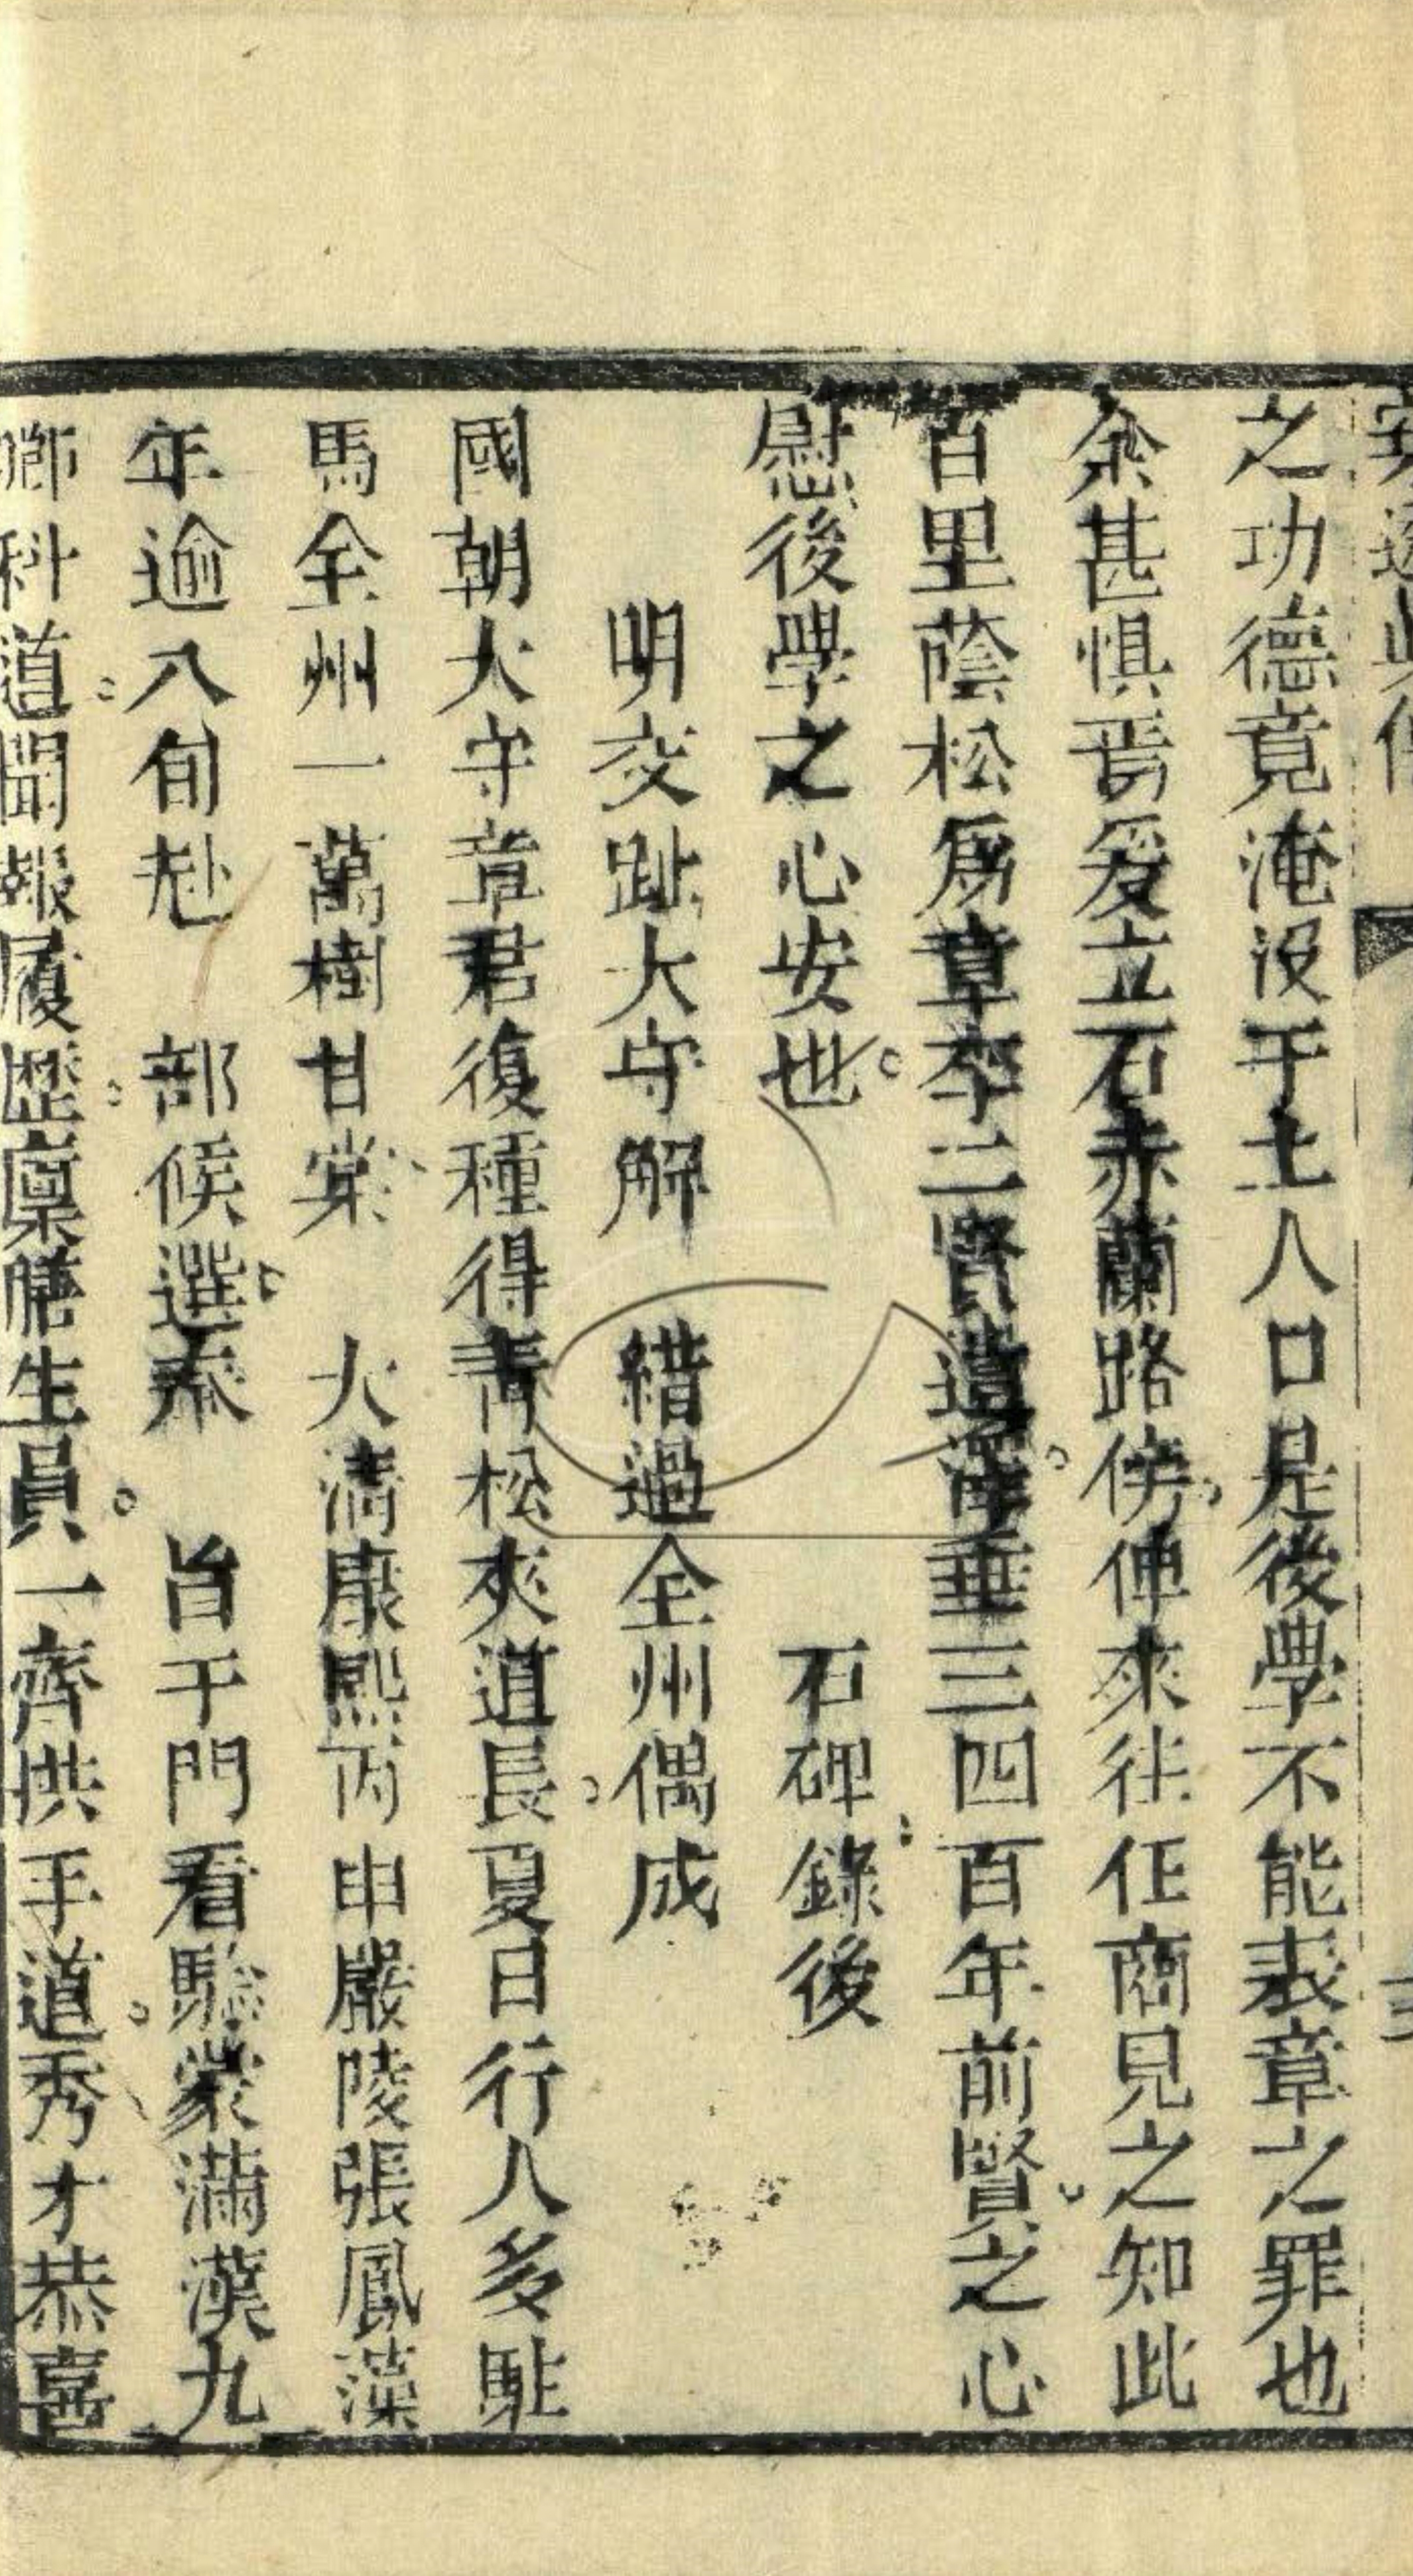 之功德竟淹没于土人口是後學不能表章之罪也
余甚惧焉爰立石赤蘭路傍俾來往仕商見之知此
百里蔭松爲章李二賢遺澤垂三四百年前賢之心
慰後學之心安也 石碑錄後
明交趾大守解 縉過全州偶成
國朝大守章君復種得青松夾道長夏日行人多駐
馬全州一萬樹甘棠 大清康熙丙申嚴陵張鳳藻
年逾八旬赴 部候選奉 旨于門看驗蒙滿漢九
卿科道聞報履歷廩膳生員一齊拱手道秀才恭喜